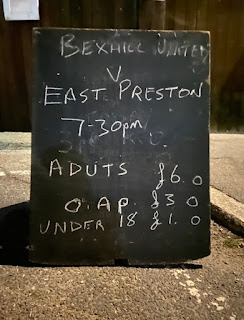 BEXHILL UNITED
V
EAST PRESTON
7-30pm
ADUTS £6.0
O.A.P. £3 0
UNDER 18 £1.0